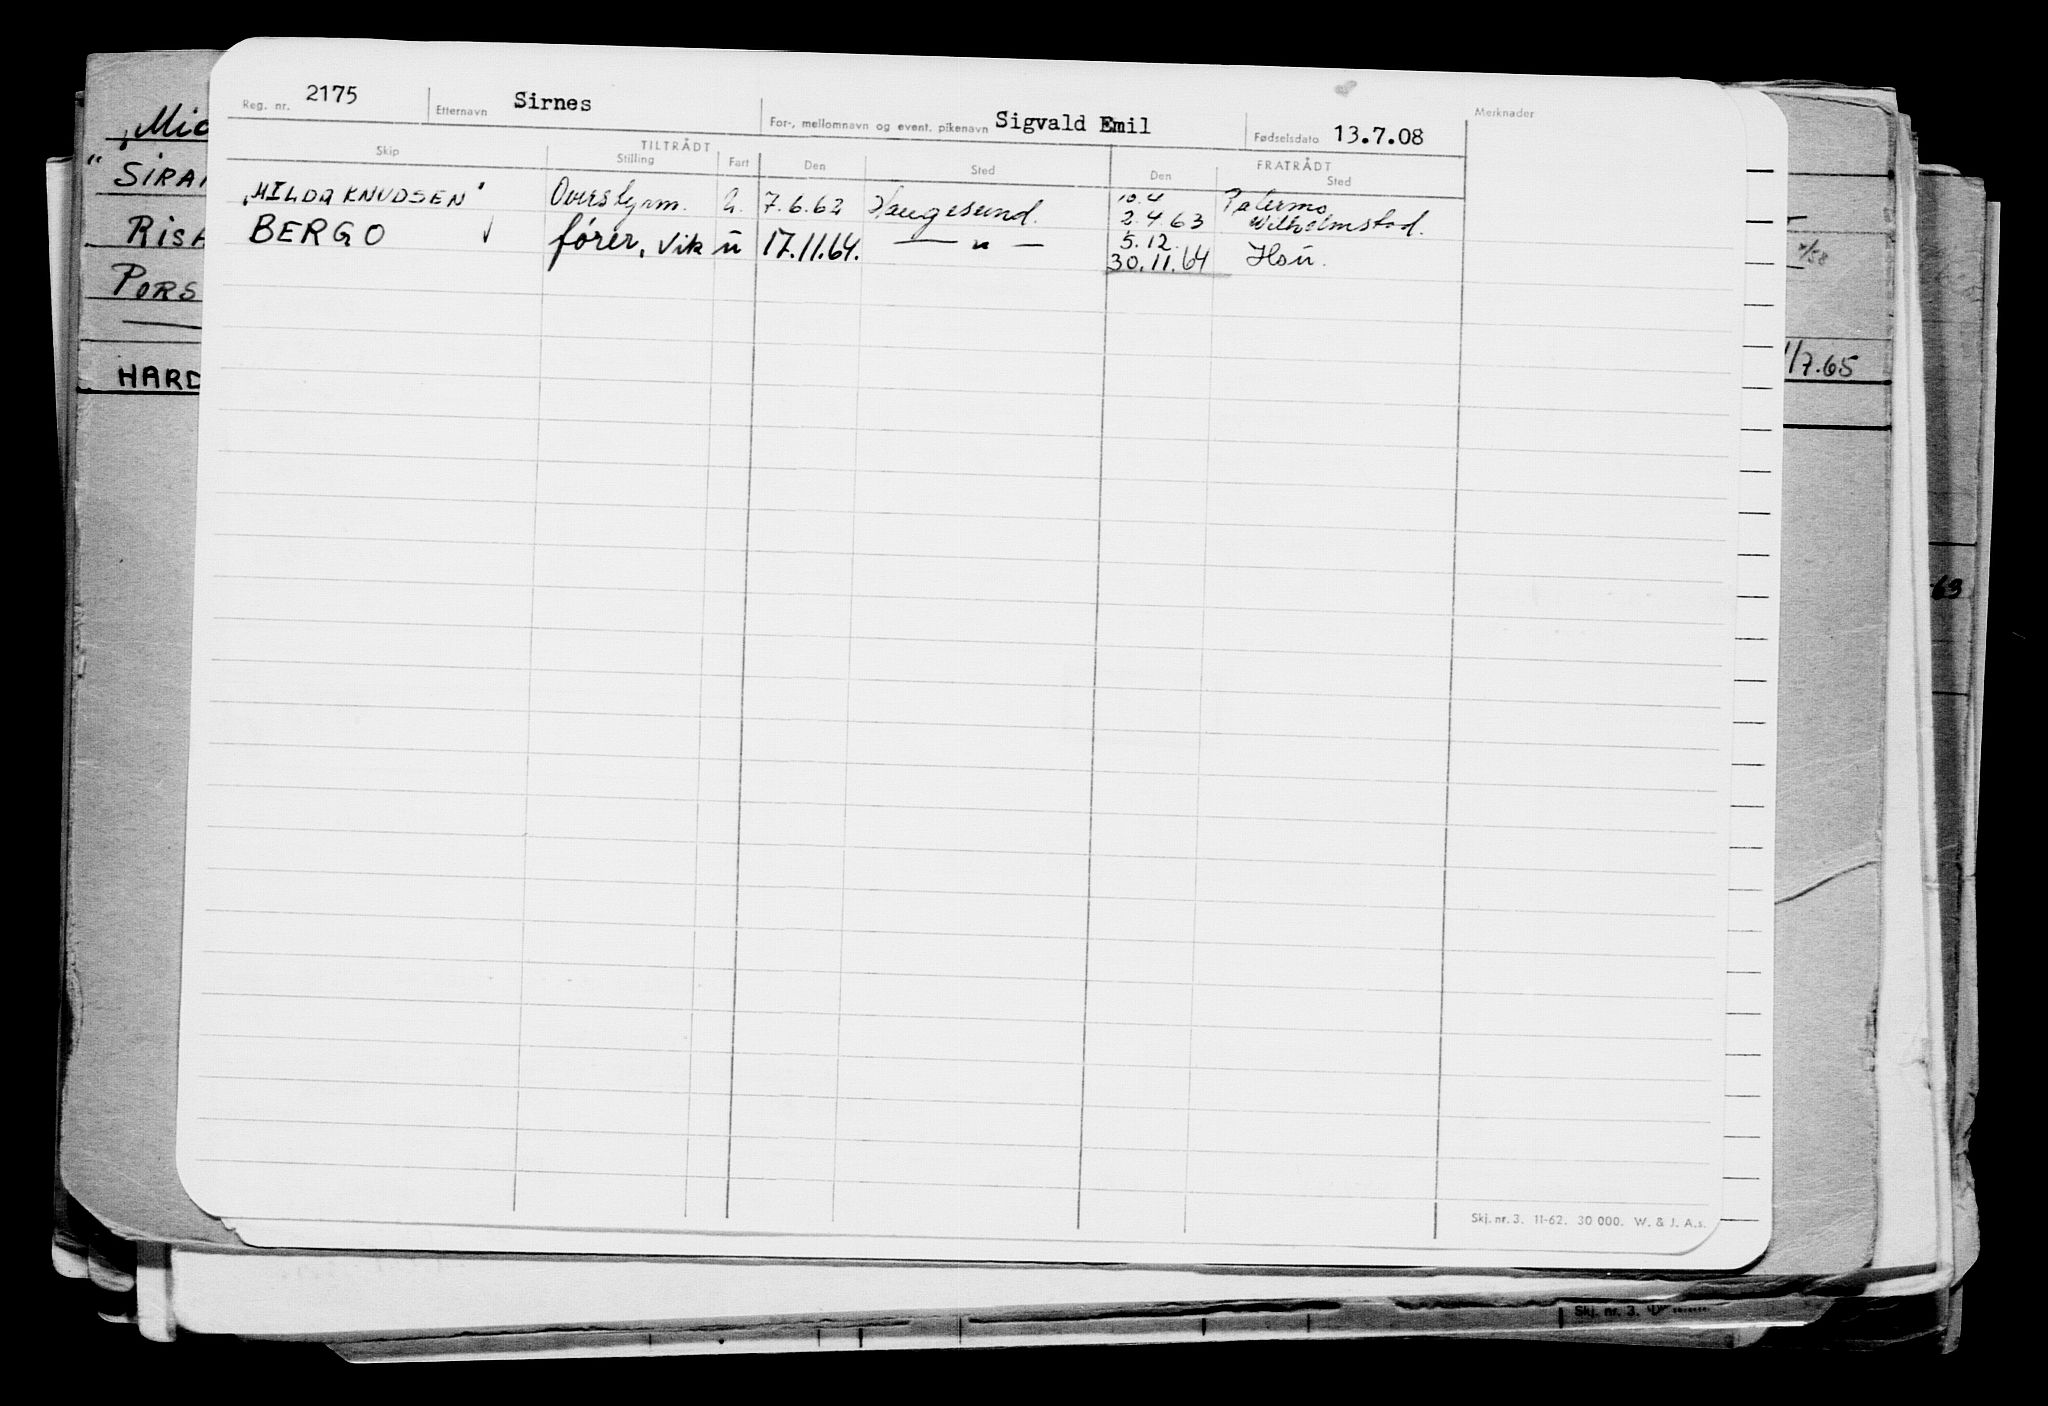 Reg. nr. 2175 Etternavn Sirnes For-, mellomnavn og event. pikenavn Sigvald Emil Fødselsdato 13.7.08 Merknader
TILTRÅDT FRATRÅDT
Skip Stilling Fart Den Sted Den Sted
10.4 Palermo
"HILDA KNUDSEN" Overstyrm. u. 7.6.62 Haugesund. 2.4 63 Wilhelmstad.
5.12.
BERGO fører, vik u 17.11.64. — " — 30.11.64 Hsu.
Skj. nr. 3. 11-62. 30 000. W. & J. A.s.
"Mic
"SIRA
RISA
PORS
HARD
/7.65
63
Skj. nr. 3.